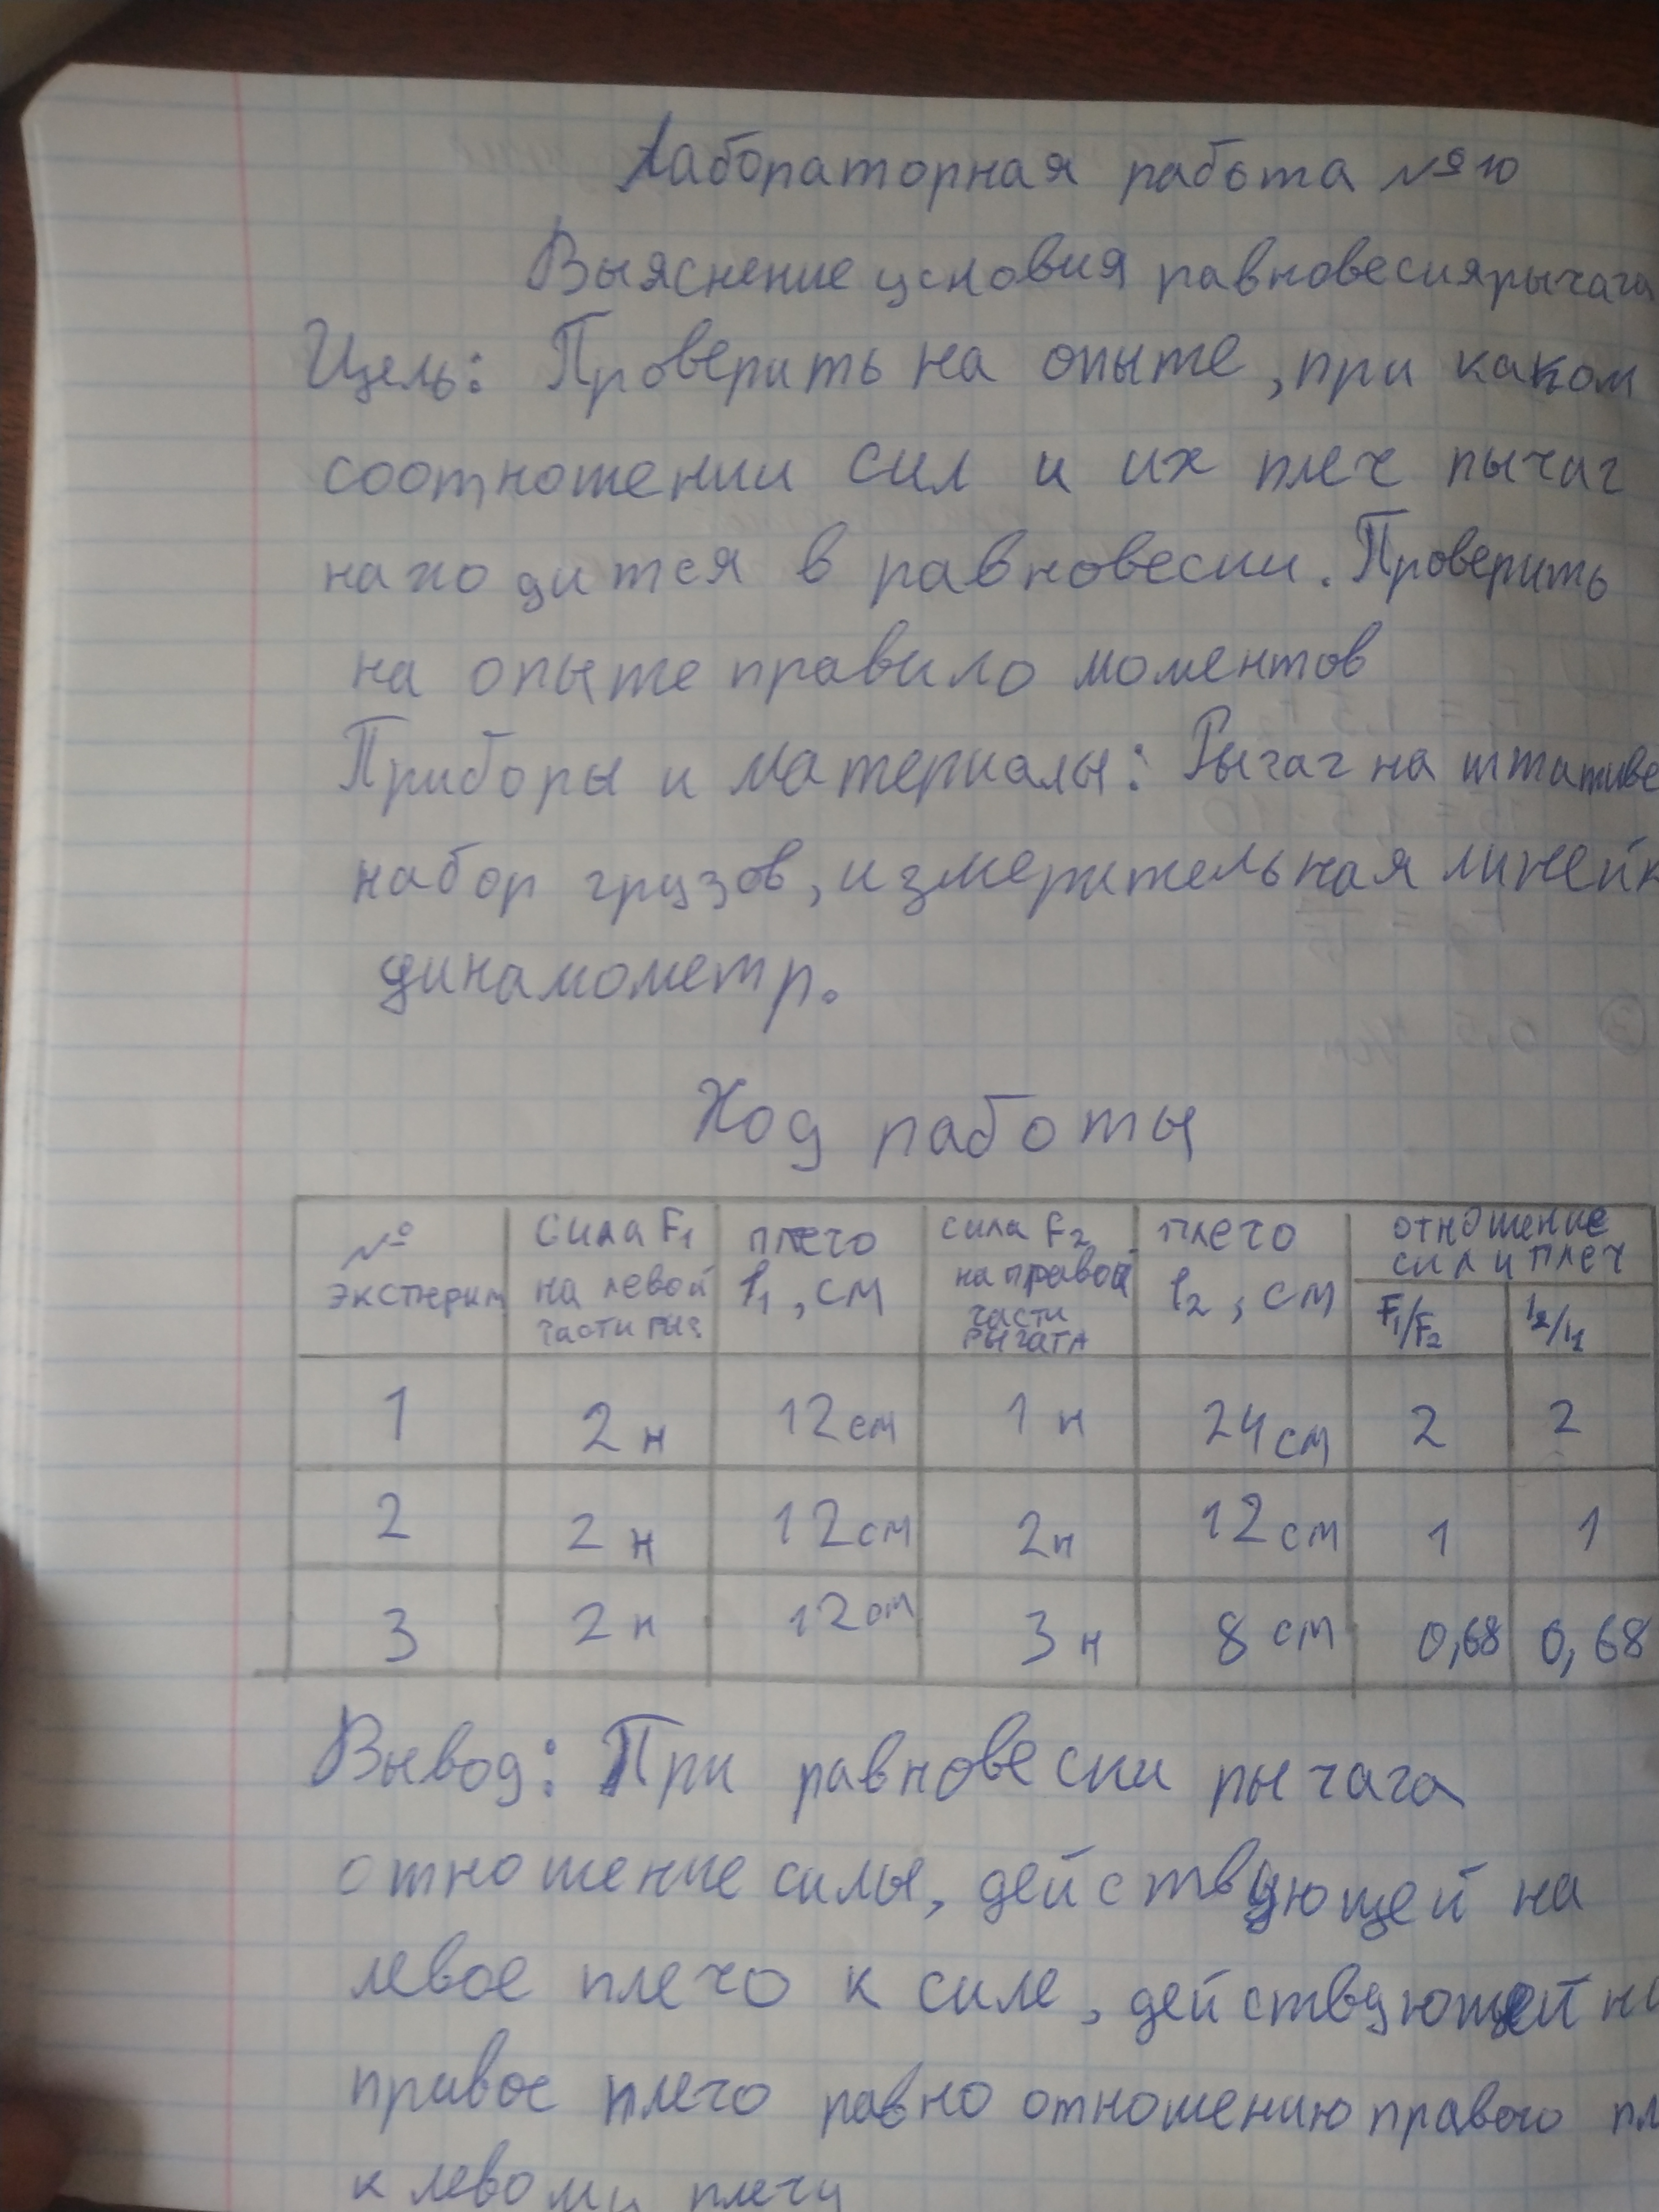 Лабораторная работа №10
Выяснение условия равновесия рычага
Цель: Проверить на опыте, при каком
соотношении сил и их плеч рычаг
находится в равновесии. Проверить
на опыте правило моментов
Приборы и материалы: Рычаг на штативе
набор грузов, измерительная линейк
динамометр.
Ход работы
№ эксперим | сила F1 на левой части рыч | плечо l1, см | сила F2 на правой части рычага | плечо l2, см | отношение сил и плеч F1/F2 | l2/l1
1 | 2 н | 12 см | 1 н | 24 см | 2 | 2
2 | 2 н | 12 см | 2 н | 12 см | 1 | 1
3 | 2 н | 12 см | 3 н | 8 см | 0,68 | 0,68
Вывод: При равновесии рычага
отношение силы, действующей на
левое плечо к силе, действующей на
правое плечо равно отношению правого пл
к левому плечу